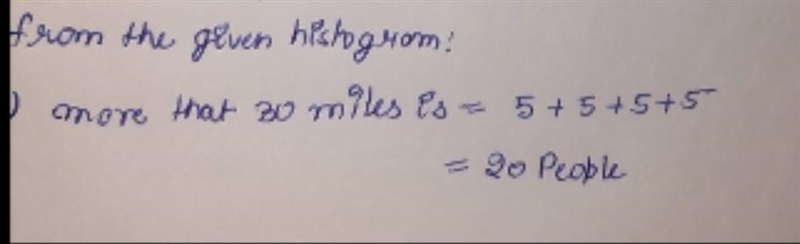 from the given histogram:
) more that 30 miles is = 5 + 5 + 5 + 5
= 20 People